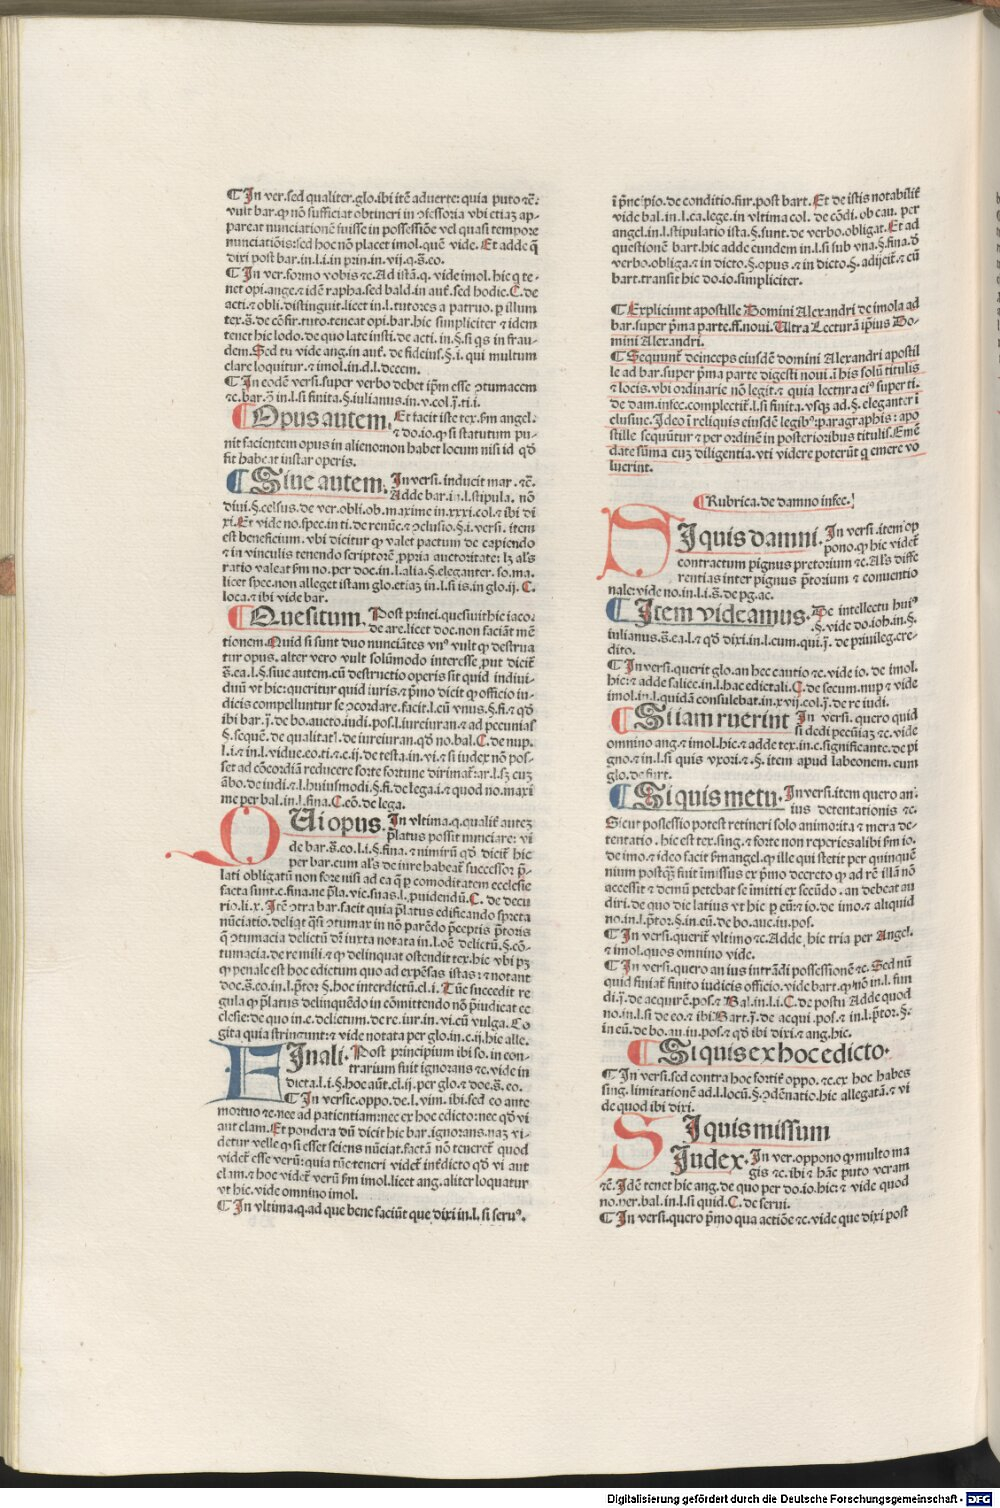 ¶ In ver. sed qualiter. glo. ibi itē aduerte: quia puto ꝛc̄.
vult bar. ꝙ nō sufficiat obtineri in ↄfessoria vbi etiaʒ ap-
pareat nunciationē fuisse in possessiōe vel quasi tempore
nunciatiōis: sed hoc nō placet imol. quē vide. Et adde q̄
dixi post bar. in l. i. in prin. in. vij. q. s̄. eo.
¶ In ver. formo vobis ꝛc. Ad istā. q. vide imol. hic q te-
net opi. ange. ⁊ idē rapha. sed bald. in aut̄. sed hodie. C. de
acti. ⁊ obli. distinguit. licet in. l. tutores a patruo. ꝑ illum
tex. s̄. de cōfir. tuto. teneat opi. bar. hic simpliciter ⁊ idem
tenet hic lodo. de quo late insti. de acti. in. §. si qs in frau-
dem. Sed tu vide ang. in aut̄. de fideius. §. i. qui multum
clare loquitur. ⁊ imol. in d. l. decem.
¶ In eodē versi. super verbo debet ip̄m esse ↄtumacem
ꝛc. bar. in l. si finita. §. iulianus. in. v. col. ȳ. ti. i.
¶ Opus autem. Et facit iste tex. s̄m angel.
⁊ do. io. ꝙ si statutum pu-
nit facientem opus in alieno: non habet locum nisi id qd̄
fit habeat instar operis.
¶ Siue autem. In versi. inducit mar. ꝛc̄.
Adde bar. in. l. stipula. nō
diui. §. celsus. de ver. obli. ob. maxime in. xxxi. col. ⁊ ibi di
xi. Et vide no. spec. in ti. de renūc. ⁊ ↄclusio. §. i. versi. item
est beneficium. vbi dicitur ꝙ valet pactum de capiendo
⁊ in vinculis tenendo scriptorē ꝓpria auctoritate: lʒ al̄s
ratio valeat s̄m no. per doc. in. l. alia. §. eleganter. so. ma.
licet spec. non alleget istam glo. etiaʒ in l. si is. in glo. ij. C.
loca. ⁊ ibi vide bar.
¶ Quesitum. Post princi. quesiuit hic iacob
de are. licet doc. non faciāt mē
tionem. Quid si sunt duo nunciātes vnꝰ vult ꝙ destrua
tur opus. alter vero vult solūmodo interesse ꝓut dicit̄
s̄. ea. l. §. siue autem. cū destructio operis sit quid indiui-
duū vt hic: queritur quid iuris. ⁊ p̄mo dicit ꝙ officio iu-
dicis compelluntur se ↄcordare. facit. l. cū vnus. §. fi. ⁊ qd̄
ibi bar. ȳ. de bo. aucto. iudi. pos. l. iureiuran. ⁊ ad pecunias
§. seque. de qualitat̄. de iureiuran. qd̄ no. bal. C. de nup.
l. i. ⁊ in l. vidue. co. ti. ⁊ c. ij. de testa. in. vi. ⁊ si iudex nō pos-
set ad cōcordiā reducere forte fortune dirimat̄: ar. l. sʒ cuʒ
ābo. de iudi. ⁊ l. huiusmodi. §. fi. de lega. i. ⁊ quod no. maxi
me per bal. in. l. fina. C. cō. de lega.
QUi opus. In vltima. q. qualit̄ autez
p̄latus possit nunciare: vi
de bar. s̄. eo. l. i. §. fina. ⁊ nimirū qd̄ dicit̄ hic
per bar. cum al̄s de iure habeat̄ successor p̄-
lati obligatū non fore nisi ad ea q̄ ꝑ comoditatem ecclesie
facta sunt. c. fina. ne p̄la. vic. suas. l. ꝓuidendū. C. de decu
rio. li. x. Itē ↄtra bar. facit quia p̄latus edificando spreta
nūciatio. deliqt q̄si ↄtumax in nō parēdo p̄ceptis p̄toris
q̄ ↄtumacia delictū dr̄ iuxta notata in. l. oē delictū. §. cō-
tumacia. de re mili. ⁊ ꝙ delinquat ostendit tex. hic vbi pʒ
ꝙ penale est hoc edictum quo ad expēsas istas: ⁊ notant
doc. s̄. eo. in l. p̄tor §. hoc interdictū. el. i. Tūc succedit re
gula ꝙ p̄latus delinquēdo in cōmittendo nō p̄iudicat ec
clesie: de quo in c. delictum. de re. iur. in. vi. cū vulga. Co
gita quia stringunt: ⁊ vide notata per glo. in c. ij. hic alle.
FInali. Post principium ibi so. in con-
trarium fuit ignorans ꝛc. vide in
dicta. l. i. §. hoc aūt. el. ij. per glo. ⁊ doc. s̄. eo.
¶ In versic. oppo. de. l. vim. ibi. sed eo ante
mortuo ꝛc. nec ad patientiam: nec ex hoc edicto: nec qd̄ vi
aut clam. Et pondera dū dicit hic bar. ignorans. naʒ vi-
detur velle ꝙ si esset sciens nūciat. factā nō teneret̄ quod
videt̄ esse verū: quia tūc teneri videt̄ int̄dicto qd̄ vi aut
clam. ⁊ hoc videt̄ verū s̄m imol. licet ang. aliter loquatur
vt hic. vide omnino imol.
¶ In vltima. q. ad que bene faciūt que dixi in. l. si seruꝰ.
i p̄ncipio. de conditio. fur. post bart. Et de istis notabilit̄
vide bal. in l. ea. lege. in vltima col. de cōdi. ob cau. per
angel. in l. stipulatio ista. §. sunt. de verbo. obligat. Et ad
questionē bart. hic adde eundem in l. si sub vna. §. fina. d̄
verbo. obliga. ⁊ in dicto. §. opus. ⁊ in dicto. §. adijcit̄. ⁊ cū
bart. transit hic do. io. simpliciter.
¶ Expliciunt apostille Domini Alexandri de imola ad
bar. super p̄ma parte. ff. noui. Ultra Lecturā ip̄ius Do-
mini Alexandri.
¶ Sequunt̄ deinceps eiusdē domini Alexandri apostil
le ad bar. super p̄ma parte digesti noui. i his solū titulis
⁊ locis. vbi ordinarie nō legit. ⁊ quia lectura eiꝰ super ti.
de dam. infec. complectit̄. l. si finita. vsqʒ ad. §. eleganter i
clusiue. Ideo i reliquis eiusdē legibꝰ: paragraphis: apo
stille sequūtur ⁊ per ordinē in posterioribus titulis. Emē
date sūma cuʒ diligentia. vti videre poterūt q emere vo
luerint.
¶ Rubrica. de damno infec.
SIquis damni. In versi. item op
pono. ꝙ hic videt̄
contractum pignus pretorium ꝛc. Al̄s diffe
rentias inter pignus p̄torium ⁊ conuentio
nale: vide no. in l. i. s̄. de pg. ac.
¶ Item videamus. De intellectu huiꝰ
§. vide do. ioh. in. §.
iulianus. s̄. ea. l. ⁊ qd̄ dixi in. l. cum. qui. ȳ. de priuileg. cre-
dito.
¶ In versi. querit glo. an hec cautio ꝛc. vide io. de imol.
hic: ⁊ adde salice. in. l. hac edictali. C. de secum. nup ⁊ vide
imol. in l. quidā consulebat. in. xvij. col. ȳ. de re iudi.
¶ Si iam ruerint In versi. quero quid
si dedi pecūiaʒ ꝛc. vide
omnino ang. ⁊ imol. hic. ⁊ adde tex. in c. significante. de pi
gno. ⁊ in l. si quis vxori. ⁊. §. item apud labeonem. cum
glo. de furt.
¶ Si quis metu. In versi. item quero an
ius detentationis ꝛc.
Sicut possessio potest retineri solo animo: ita ⁊ mera de-
tentatio. hic est tex. sing. ⁊ forte non reperies alibi s̄m io.
de imo. ⁊ ideo facit s̄m angel. ꝙ ille qui stetit per quinquē
nium postqʒ̄ fuit imissus ex p̄mo decreto ꝙ ad rē illā nō
accessit ⁊ demū petebat se imitti ex secūdo. an debeat au
diri. de quo dic latius vt hic ꝑ eū: ⁊ io. de imo. ⁊ aliquid
no. in. l. p̄tor. §. in eū. de bo. auc. iu. pos.
¶ In versi. querit̄ vltimo ꝛc. Adde hic tria per Angel.
⁊ imol. quos omnino vide.
¶ In versi. quero an ius intrādi possessionē ꝛc. Sed nū
quid finiat̄ finito iudicis officio. vide bart. ꝙ nō in. l. fun
di. ȳ. de acquirē. pos. ⁊ Bal. in. l. i. C. de postu Adde quod
no. in l. si de eo. ⁊ ibi Bart. ȳ. de acqui. pos. ⁊ in l. p̄tor. §.
in eū. de bo. au. iu. pos. ⁊ qd̄ ibi dixi. ⁊ ang. hic.
¶ Si quis ex hoc edicto.
¶ In versi. sed contra hoc fortit̄ oppo. ꝛc. ex hoc habes
sing. limitationē ad. l. locū. §. ↄdēnatio. hic allegatā. ⁊ vi
de quod ibi dixi.
SIquis missum
Judex. In ver. oppono ꝙ multo ma
gis ꝛc. ibi ⁊ hāc puto veram
ꝛc̄. Idē tenet hic ang. de quo per do. io. hic: ⁊ vide quod
no. per. bal. in. l. si quid. C. de serui.
¶ In versi. quero p̄mo qua actiōe ꝛc. vide que dixi post
Digitalisierung gefördert durch die Deutsche Forschungsgemeinschaft - DFG